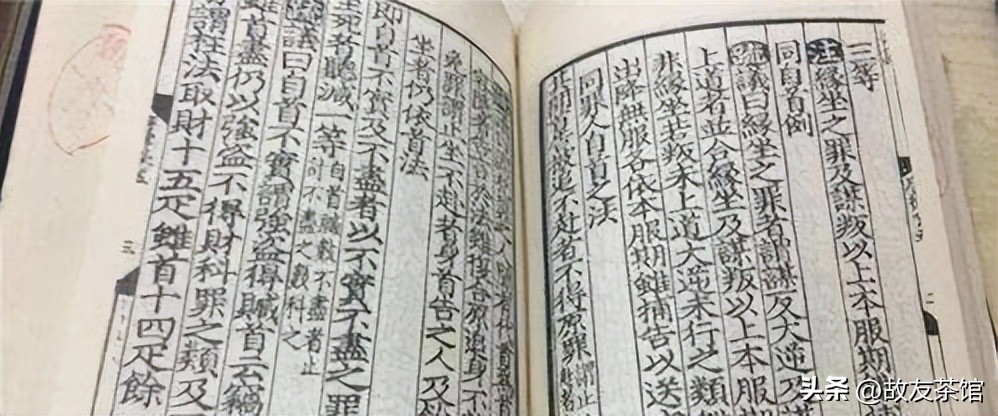 三等
注緣坐之罪及謀叛以上本服期
同自首例
疏議曰緣坐之罪者謂謀反大逆及
上道者並合緣坐及謀叛以上本服
非緣坐若叛未上道大逆未行之類
出降無服各依本服期雖捕告以送
同罪人自首之法
聞首告被追不赴者不得原罪謂止
免罪謂止坐不赴者身首告之人及
坐者仍依首法
即自首不實及不盡者以不實不盡之罪
至死者聽減一等自首贓數不盡者止計不盡之數科之
疏議曰自首不實謂強盜得贓首云竊
雖首盡仍以強盜不得財科罪之類及
謂枉法取財十五疋雖首十四疋餘
头条 @故友茶馆